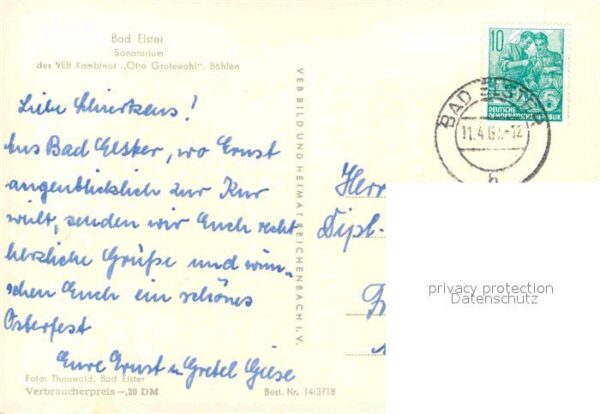 Bad Elster
Sanatorium
des VEB Kombinat „Otto Grotewohl“, Böhlen
Liebe
Aus Bad Elster, wo Ernst
augenblicklich zur Kur
weilt, senden wir Euch recht
herzliche Grüße und wün-
schen Euch ein schönes
Osterfest
Eure Ernst u. Gretel Giese
Foto: Thauwald, Bad Elster
Verbraucherpreis –,20 DM
Best. Nr. 14/3718
VEB BILD UND HEIMAT REICHENBACH I. V.
10
DEUTSCHE
DEMOKRATISCHE REPUBLIK
BAD ELSTER
h
Herr
Dipl.-
privacy protection
Datenschutz